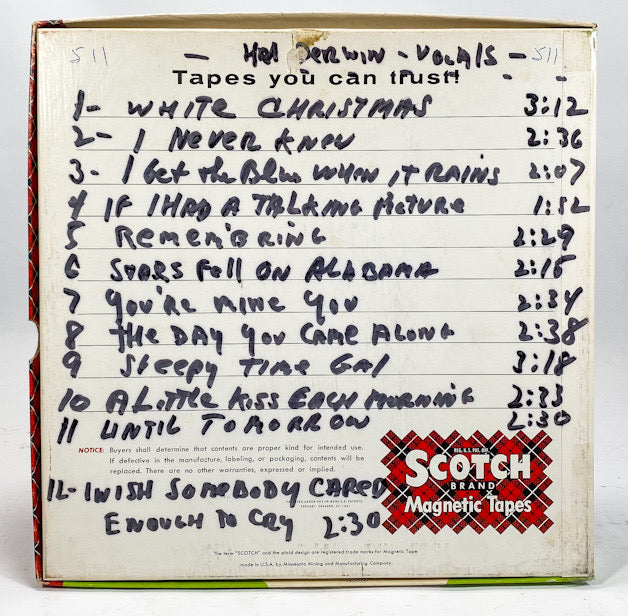 511 - Hal DERWIN - VOCAlS - 511
Tapes you can trust!
1- WHITE CHRISTMAS 3:12
2- I NEVER KNEW 2:36
3- I Get the Blues WHEN IT RAINS 2:07
4 IF I HAD A TALKING PICTURE 1:52
5 REMEMBRING 2:29
6 STARS FAll ON ALABAMA 2:15
7 YOU'RE MINE YOU 2:34
8 tHE DAY YOU CAME ALONG 2:38
9 SleePY TIME GAl 3:18
10 A LittlE KISS EACH MORNING 2:33
11 UNTIL TOMORROW 2:30
NOTICE: Buyers shall determine that contents are proper kind for intended use.
If defective in the manufacture, labeling, or packaging, contents will be
replaced. There are no other warranties, expressed or implied.
REG. U.S. PAT. OFF.
SCOTCH
BRAND
Magnetic Tapes
12- I WISH SOMEBODY CARED
ENOUGH TO CRY 2:30
The term "SCOTCH" and the plaid design are registered trade marks for Magnetic Tape
made in U.S.A. by Minnesota Mining and Manufacturing Company.